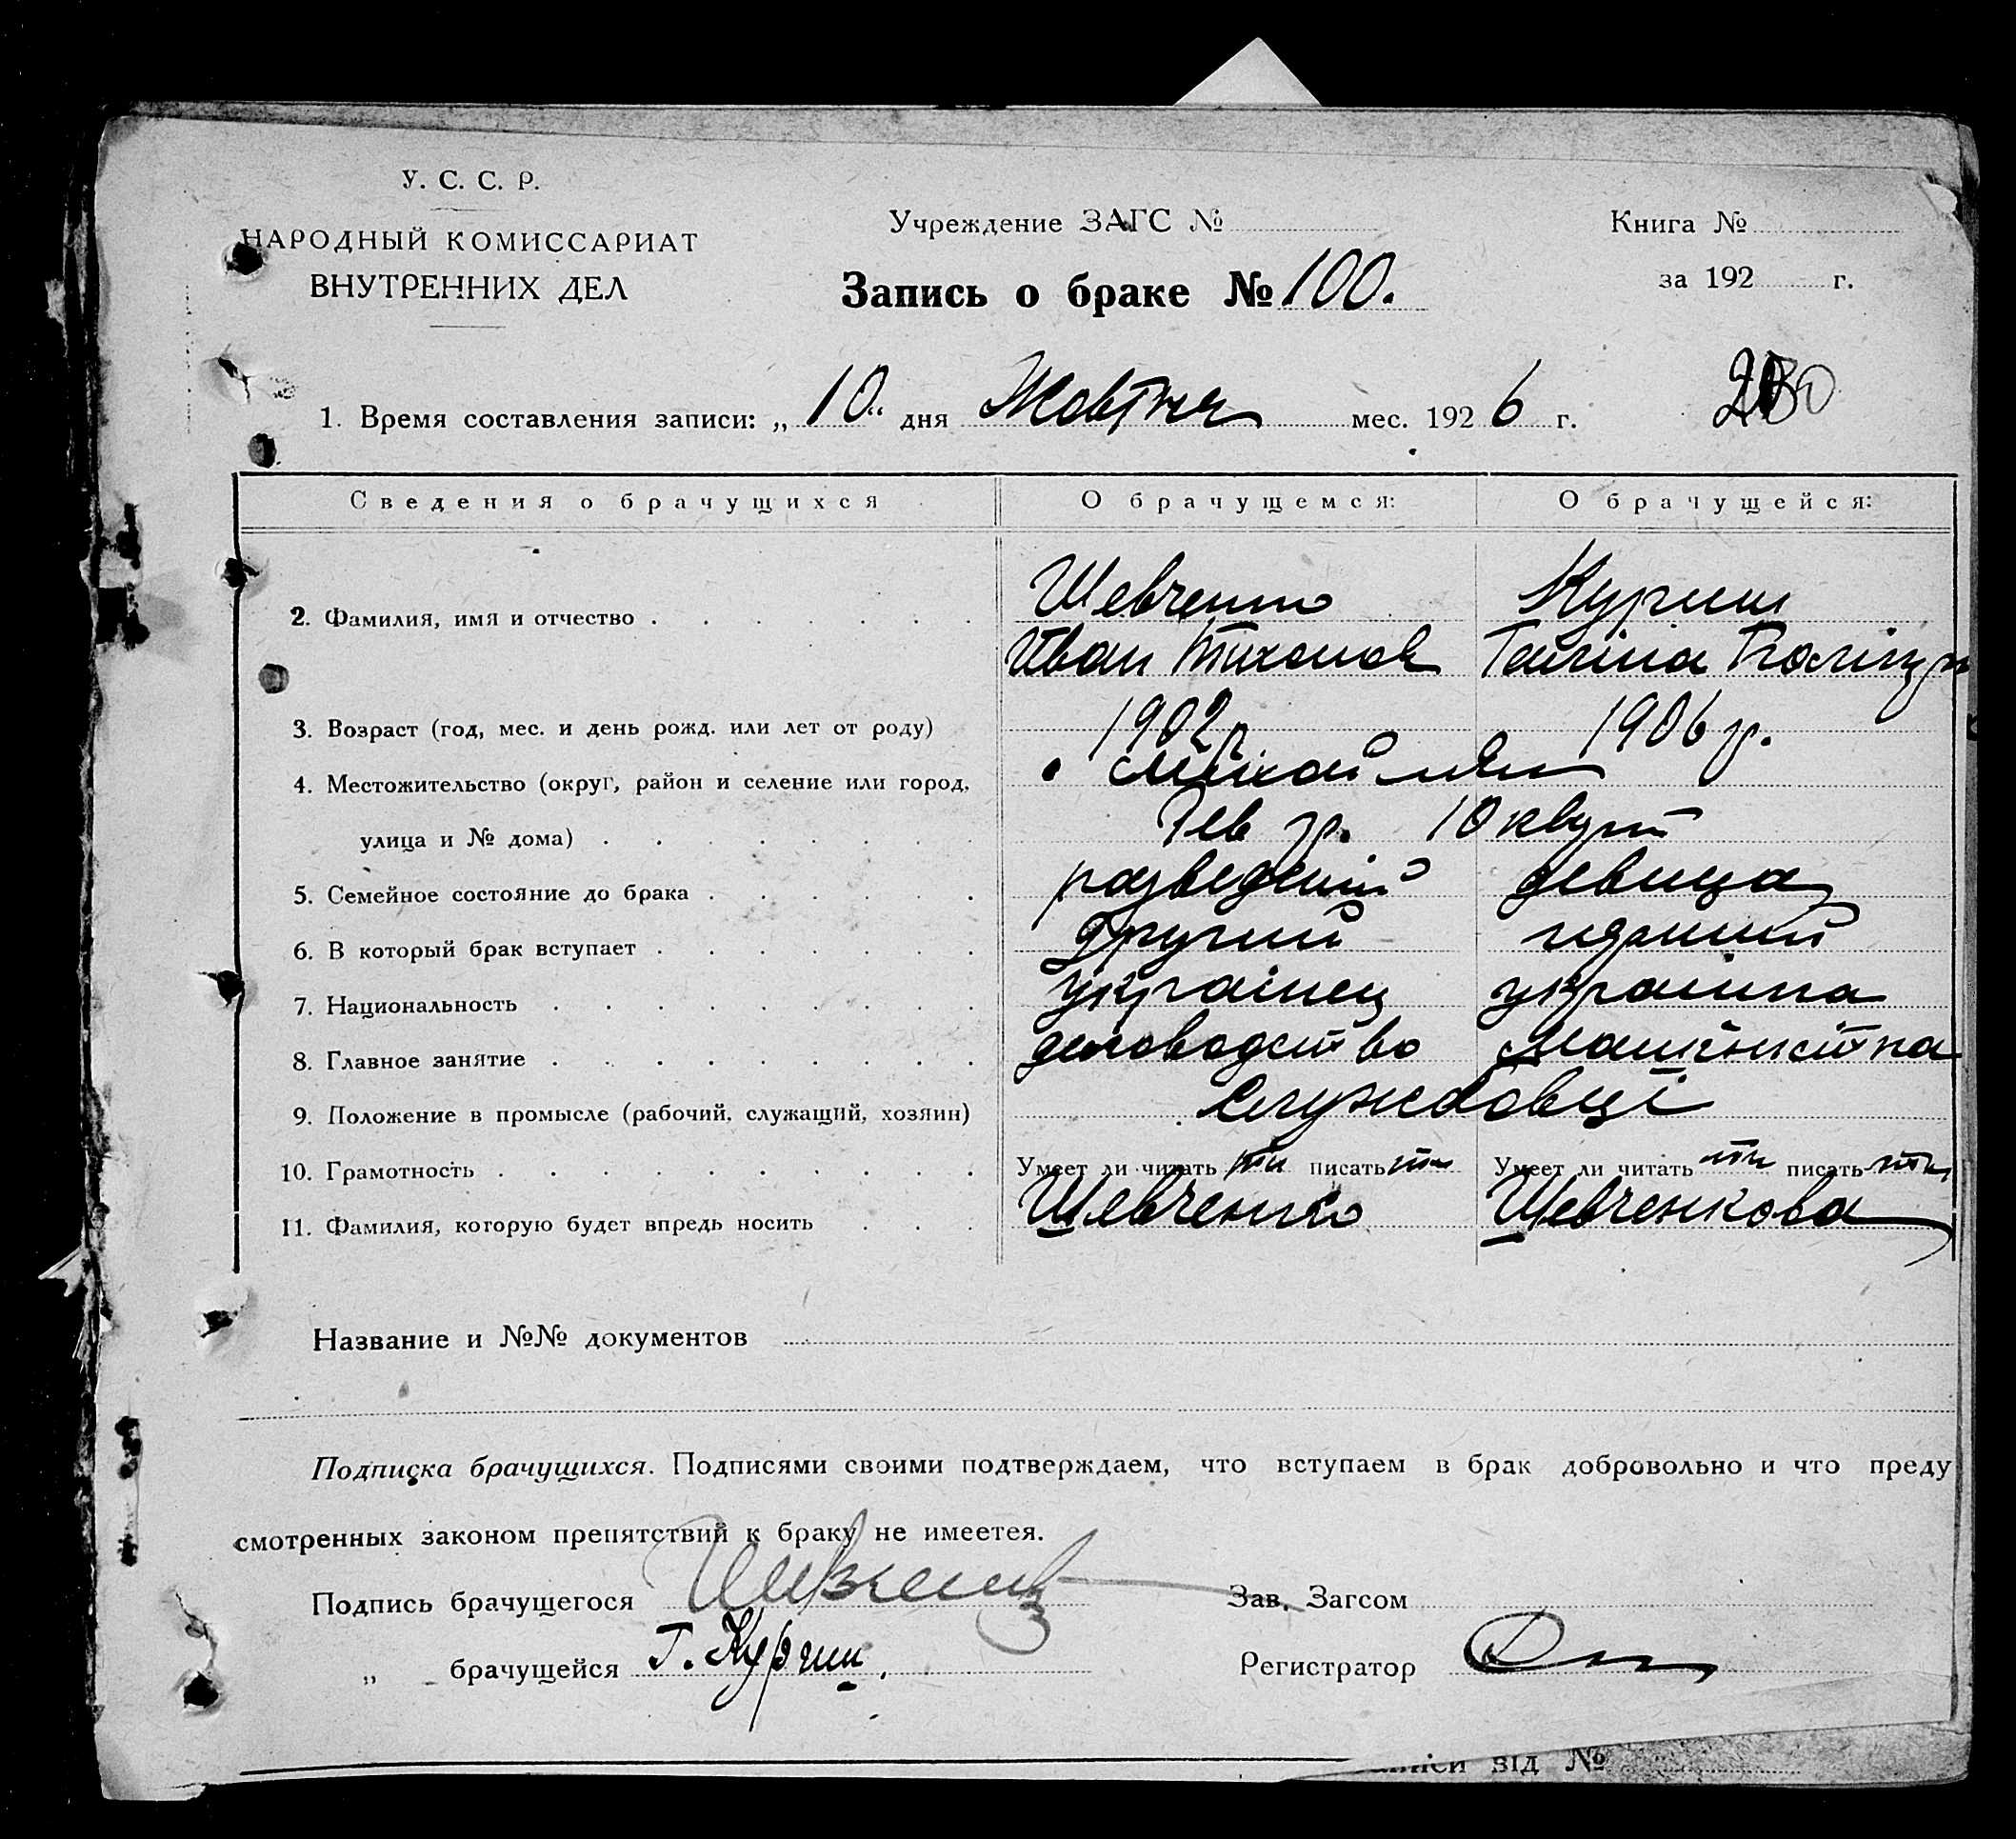 У. С. С. Р.
НАРОДНЫЙ КОМИССАРИАТ
ВНУТРЕННИХ ДЕЛ
Учреждение ЗАГС №
Книга №
Запись о браке № 100.
за 192 г.
1. Время составления записи: „ 10 " дня Жовтня мес. 192 6 г.
Сведения о брачущихся
О брачущемся:
О брачущейся:
2. Фамилия, имя и отчество
Шевченко
Куриш
Иван Тихонов
3. Возраст (год, мес. и день рожд. или лет от роду)
1902 р.
1906 р.
4. Местожительство (округ, район и селение или город,
улица и № дома)
розведений
девица
5. Семейное состояние до брака
6. В который брак вступает
другий
7. Национальность
українец
українка
8. Главное занятие
деловодство
Машиністка
9. Положение в промысле (рабочий, служащий, хозяин)
службовці
10. Грамотность
Умеет ли читать писать
Умеет ли читать писать
11. Фамилия, которую будет впредь носить
Шевченко
Шевченкова
Название и №№ документов
Подписка брачущихся. Подписями своими подтверждаем, что вступаем в брак добровольно и что преду
смотренных законом препятствий к браку не имеетея.
Подпись брачущегося
Зав. Загсом
„ брачущейся Г. Куриш.
Регистратор
зід №